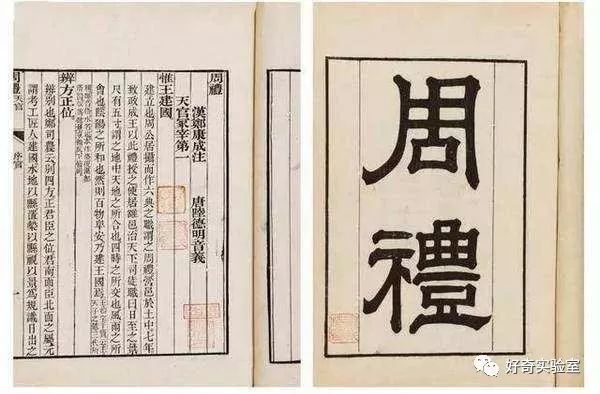 周禮
周禮
漢鄭康成注　唐陸德明音義
天官冢宰第一
惟王建國
建立也周公居攝而作六典之職謂之周禮營邑於土中七年
致政成王以此禮授之使居雒邑治天下司徒職曰日至之景
尺有五寸謂之地中天地之所合也四時之所交也風雨之所
會也陰陽之所和也然則百物阜安乃建王國焉
辨方正位
辨別也鄭司農云別四方正君臣之位君南面臣北面之屬元
謂考工匠人建國水地以縣置槷以縣視以景爲規識日出之
周禮 天官 序官 一
好奇实验室